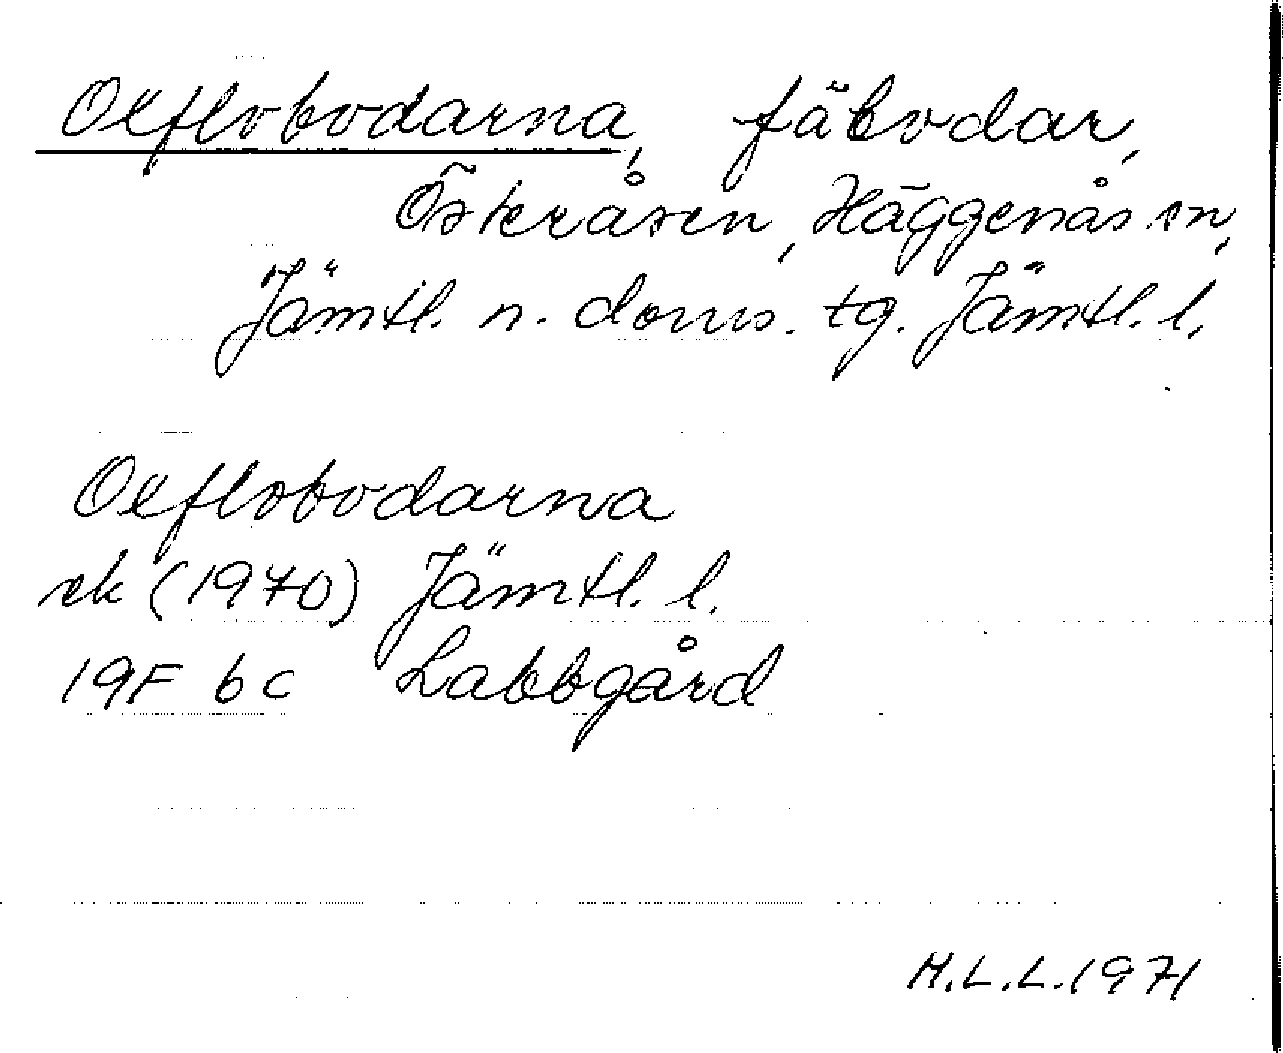 Oxflobodarna, fäbodar,
Österåsen, Häggenås sn,
Jämtl. n. doms. tg. Jämtl. l.
Oxflobodarna
ek (1970) Jämtl. l.
19F bc Labbgård
M.L.L. 1971